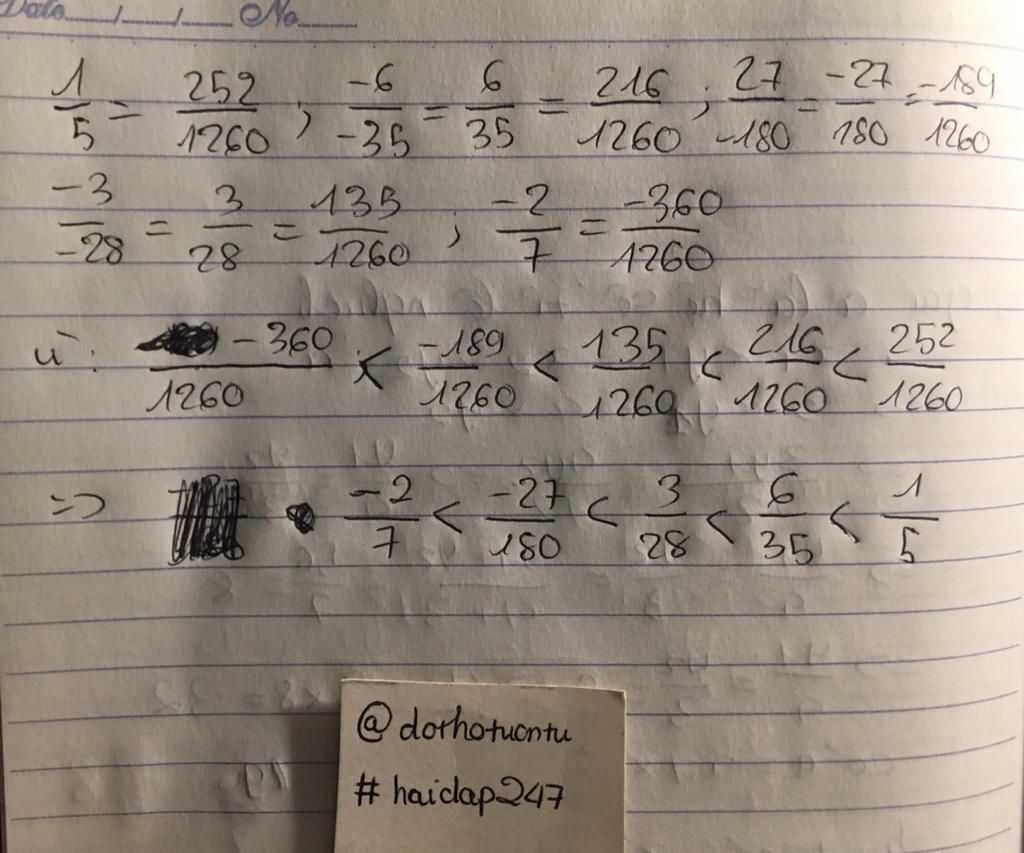 Date / / No
1/5 = 252/1260 ; -6/-35 = 6/35 = 216/1260 ; 27/-180 = -27/180 = -189/1260
-3/-28 = 3/28 = 135/1260 ; -2/7 = -360/1260
-360/1260 < -189/1260 < 135/1260 < 216/1260 < 252/1260
=> -2/7 < -27/180 < 3/28 < 6/35 < 1/5
@dothotuontu
#haidap247